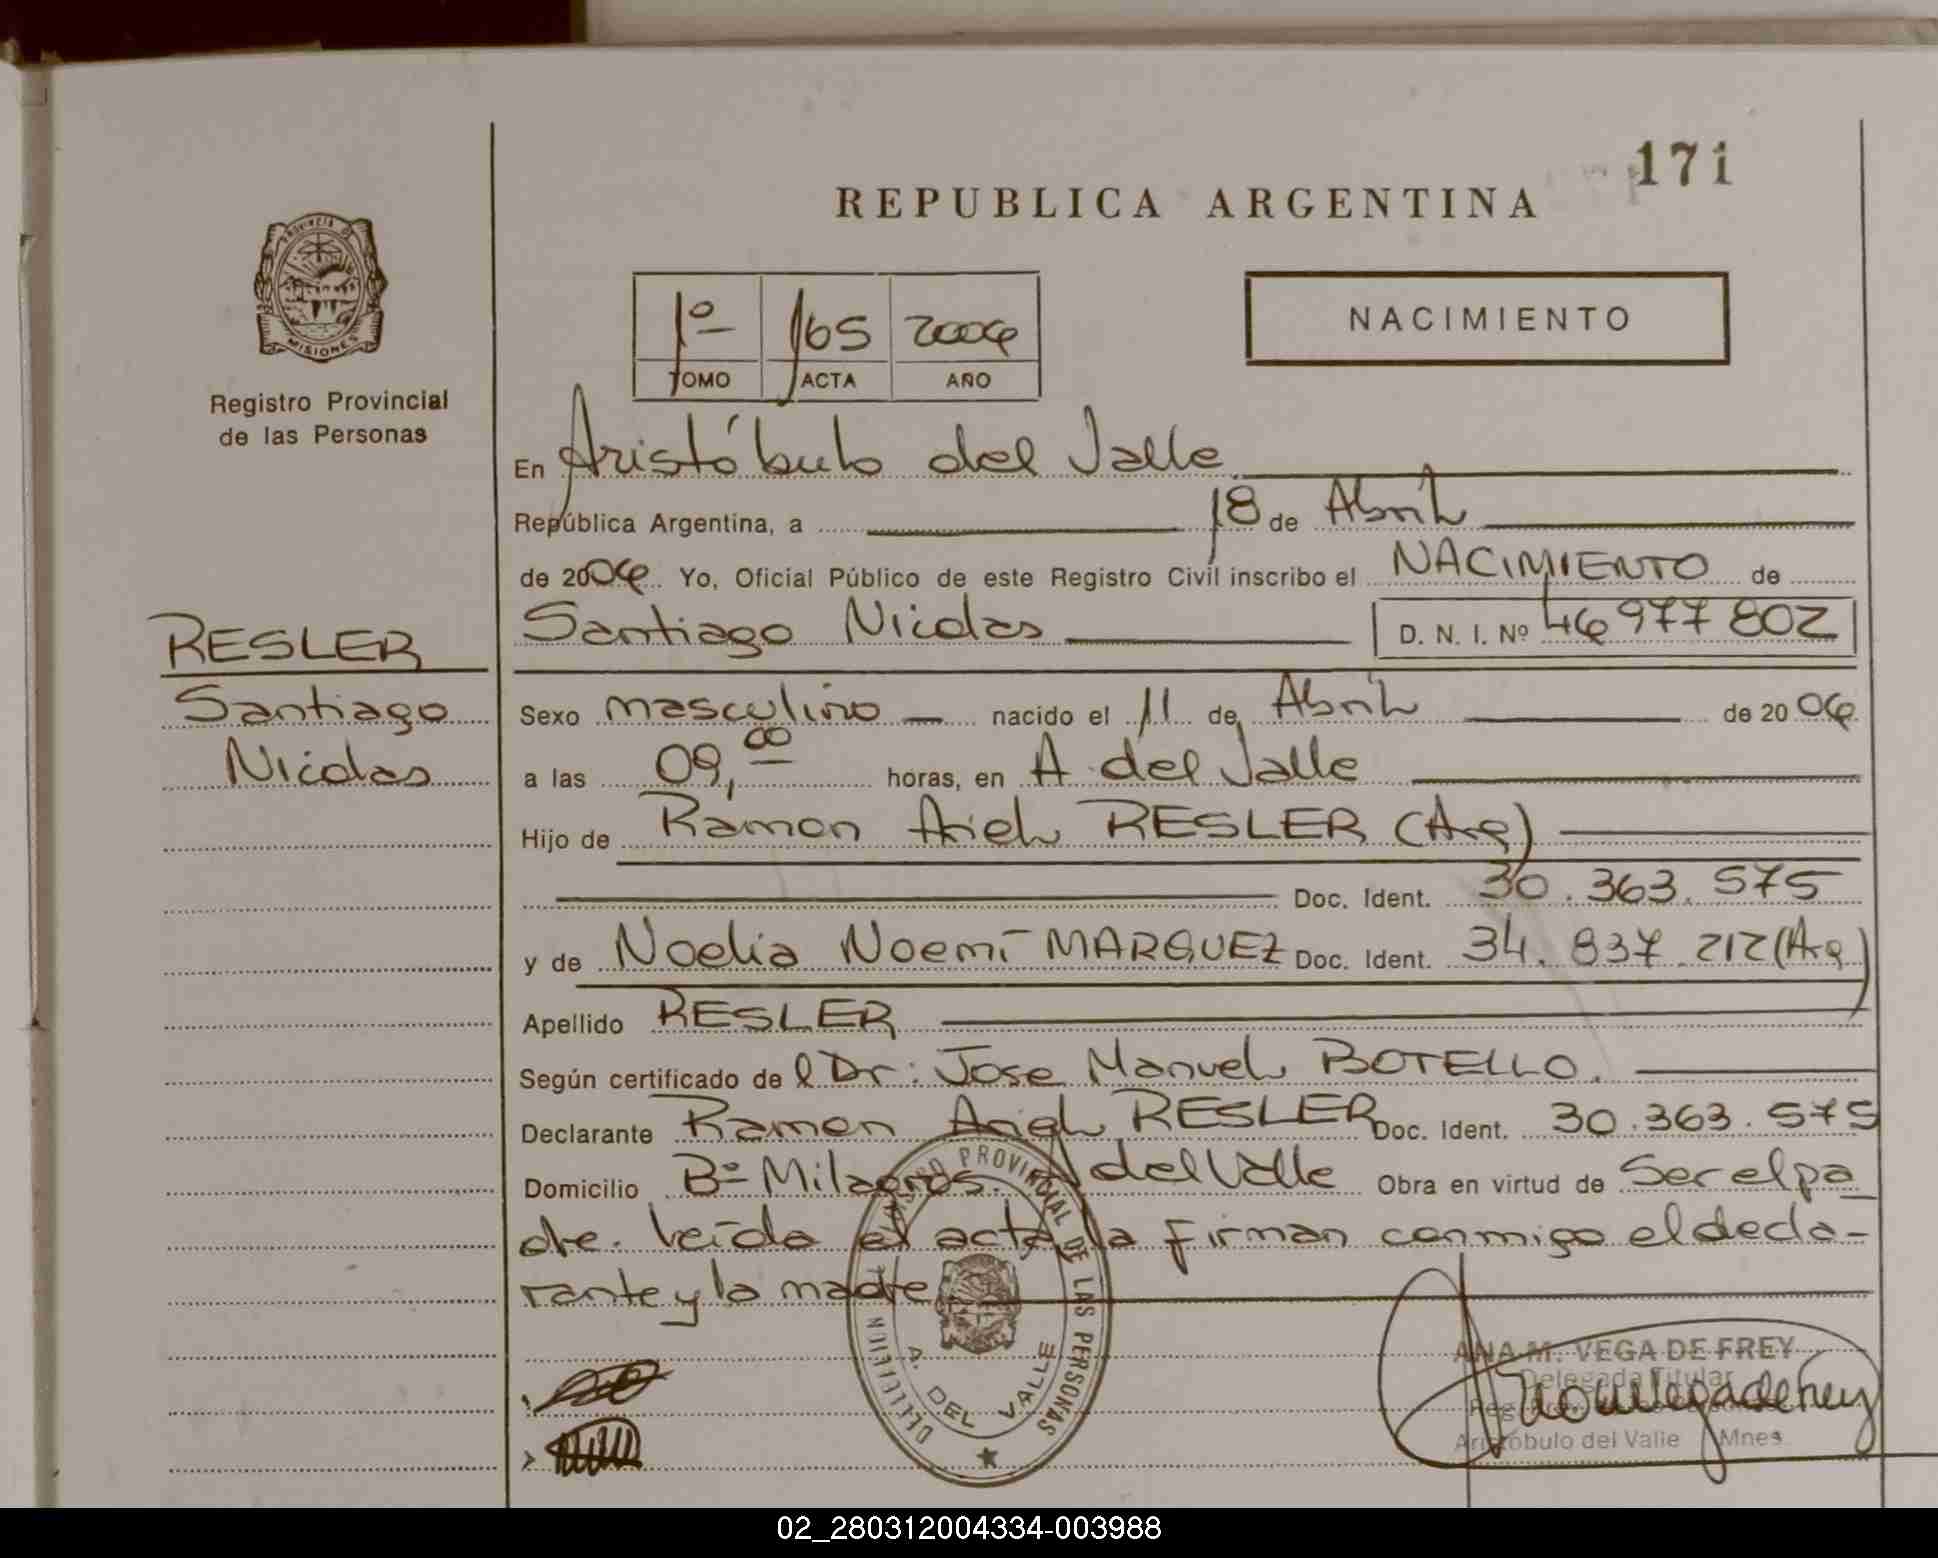 171
REPUBLICA ARGENTINA
PROVINCIA DE
MISIONES
Registro Provincial
de las Personas
1º 165 2006
TOMO ACTA AÑO
NACIMIENTO
En Aristóbulo del Valle
República Argentina, a 18 de Abril
de 2006 Yo, Oficial Público de este Registro Civil inscribo el NACIMIENTO de
Santiago Nicolas D. N. I. Nº 46977802
RESLER
Santiago
Nicolas
Sexo masculino nacido el 11 de Abril de 2006
a las 09,00 horas, en A. del Valle
Hijo de Ramon Ariel RESLER (Arg)
Doc. Ident. 30.363.575
y de Noelia Noemí MARQUEZ Doc. Ident. 34.837.212 (Arg)
Apellido RESLER
Según certificado del Dr: Jose Manuel BOTELLO.
Declarante Ramon Ariel RESLER Doc. Ident. 30.363.575
Domicilio Bº Milagros. A del Valle Obra en virtud de Ser el pa
dre. leída el acta la firman conmigo el decla-
rante y la madre
PROVINCIAL DE LAS PERSONAS
A. DEL VALLE
ANA M. VEGA DE FREY
Delegada Titular
Aristóbulo del Valle Mnes
02_280312004334-003988